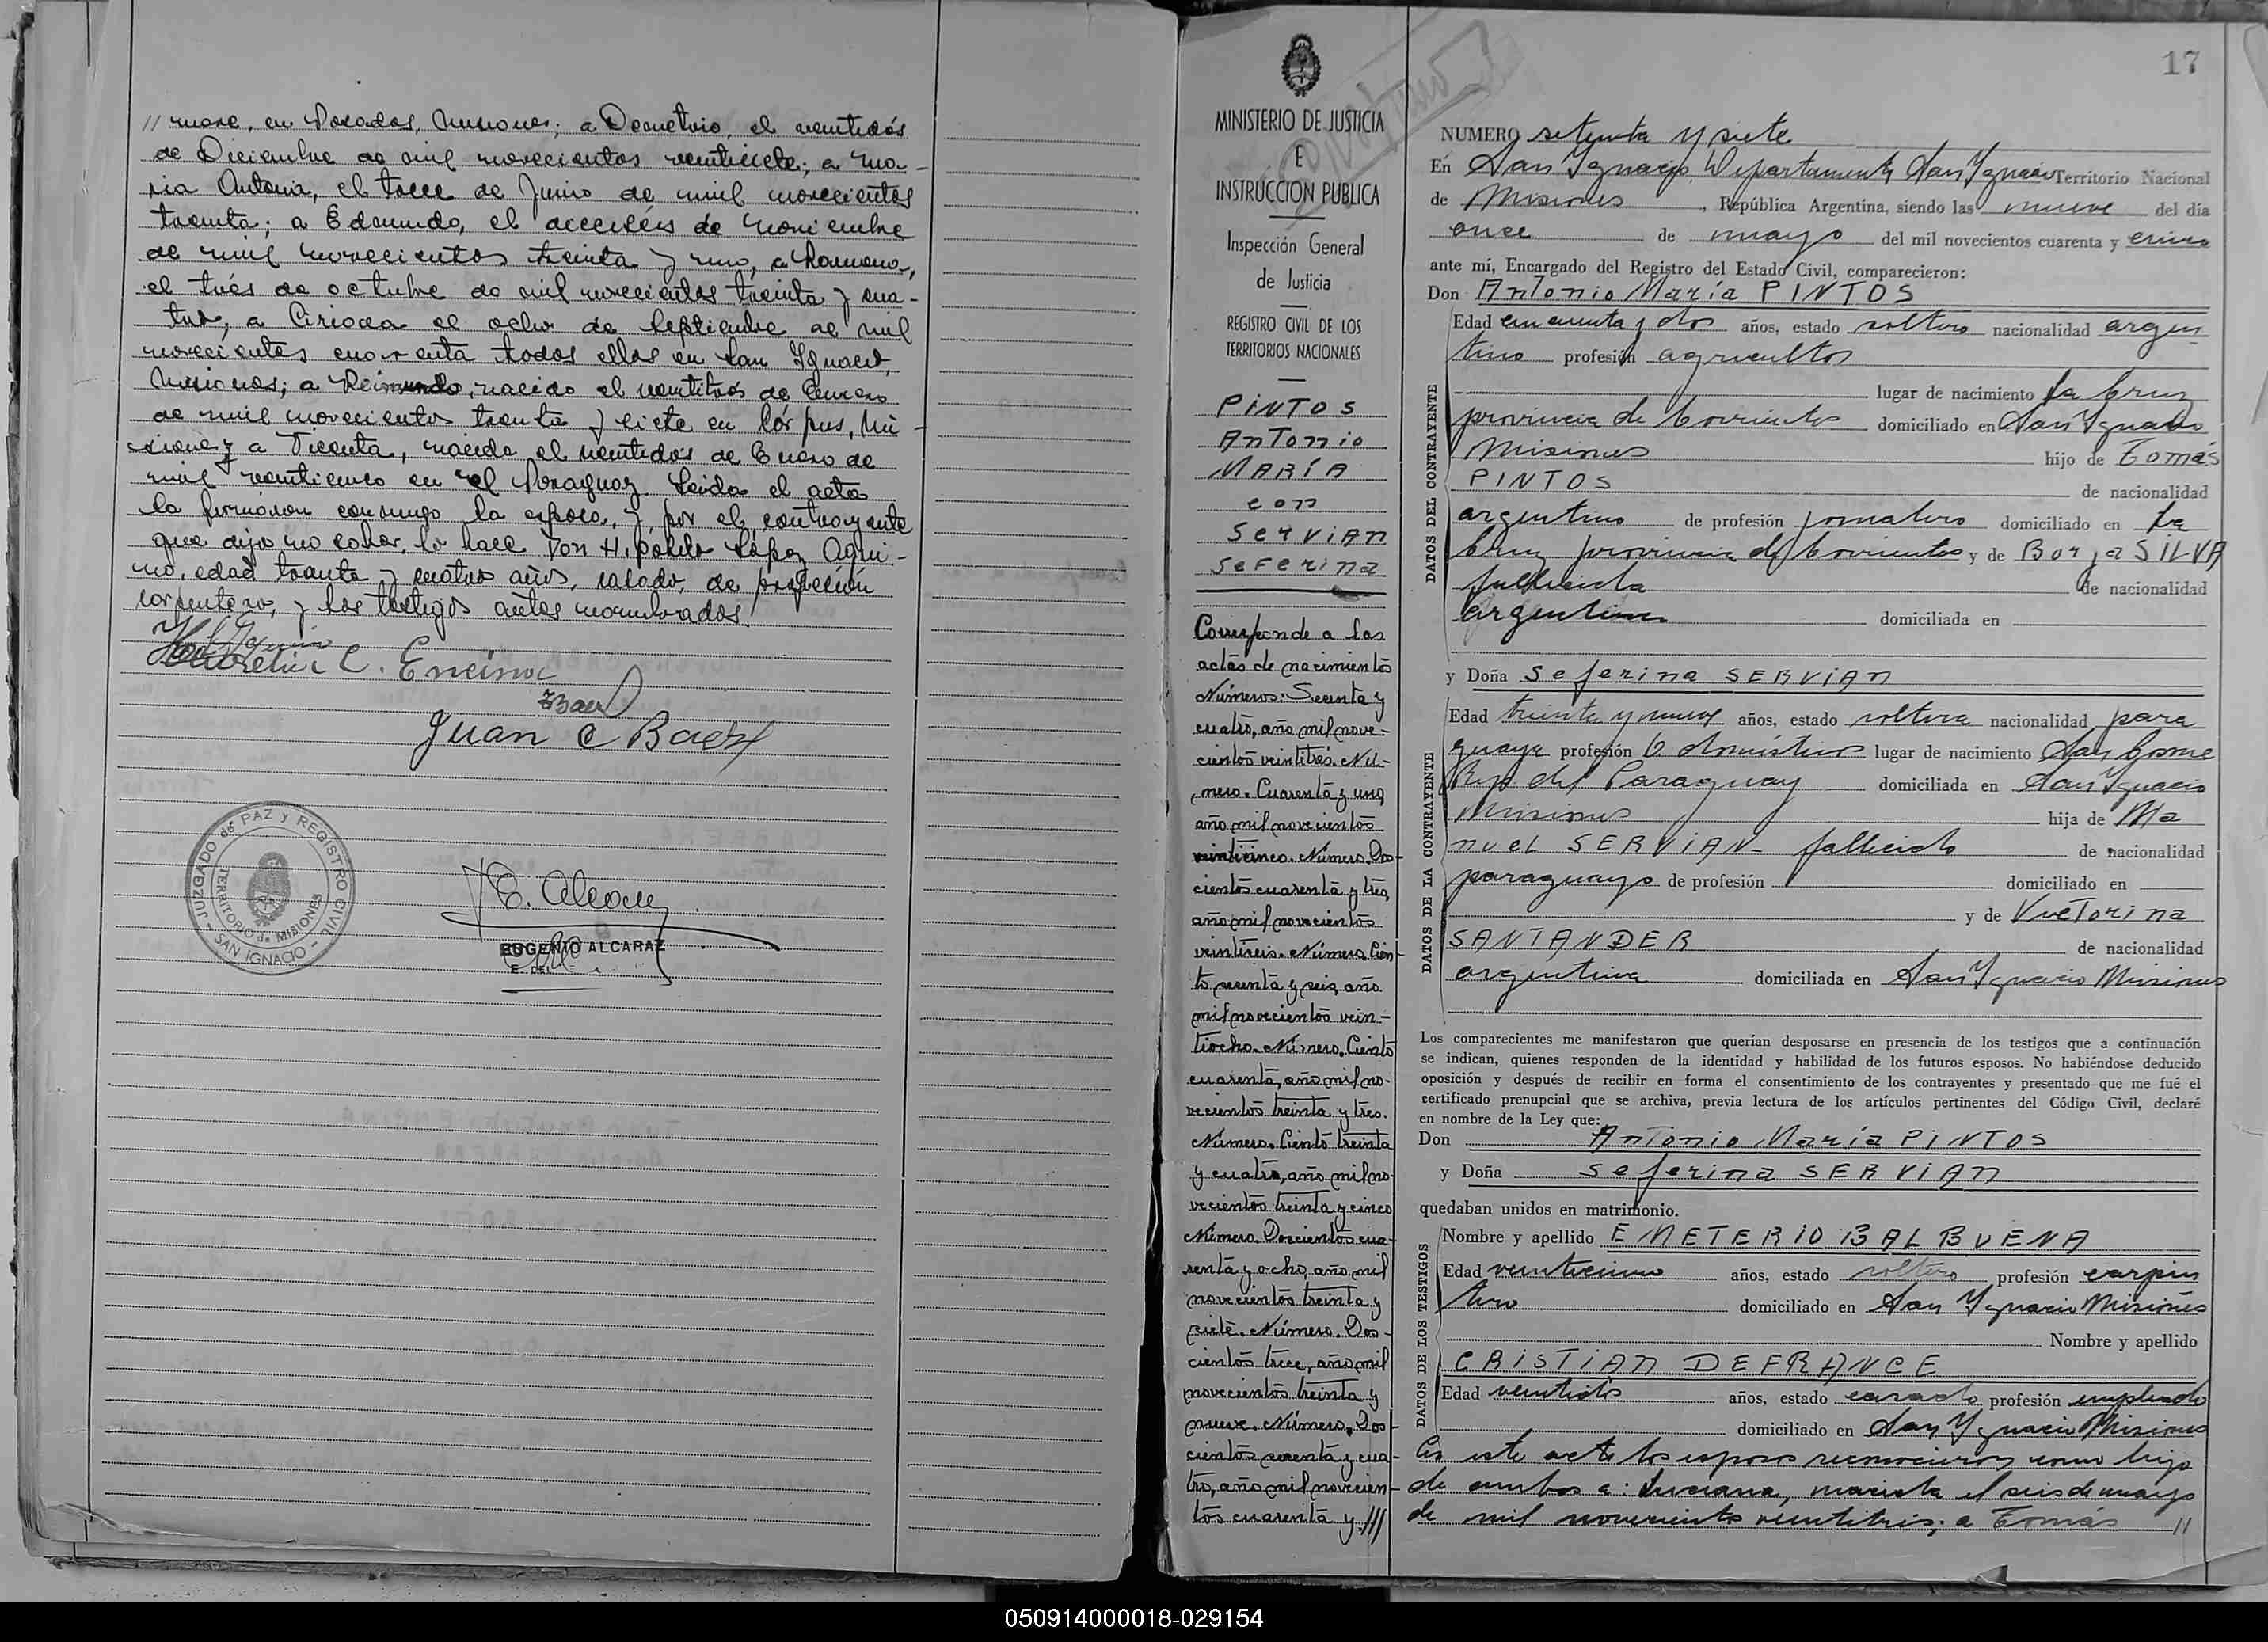 // nueve, en Posadas, Misiones; a Demetrio, el veintidós
de Diciembre de mil novecientos veintisiete; a Ma-
ria Antonia, el trece de Junio de mil novecientos
treinta; a Edmundo, el dieciséis de Noviembre
de mil novecientos treinta y uno, a Romana,
el trés de octubre de mil novecientos treinta y cua-
tro, a Ciriaca el ocho de Septiembre de mil
novecientos cuarenta todos ellos en San Ignacio,
Misiones; a Reimundo, nacido el veintitrés de Enero
de mil novecientos treinta y siete en Córpus, Mi-
siones y a Vicenta, nacida el veintidos de Enero de
mil veinticinco en el Paraguay. Leida el acta
la firmaron conmigo la esposa, y, por el contrayente
que dijo no saber, lo hace Don Hipólito López Aqui-
no, edad treinta y cuatro años, casado, de profesión
carpintero, y los testigos antes nombrados.
C. Encina
Baez
Juan C Baez
JUZGADO de PAZ y REGISTRO CIVIL
TERRITORIO de MISIONES
SAN IGNACIO
E. Alcaraz
EUGENIO ALCARAZ
E. DEL
17
MINISTERIO DE JUSTICIA
E
INSTRUCCION PUBLICA
Inspección General
de Justicia
REGISTRO CIVIL DE LOS
TERRITORIOS NACIONALES
PINTOS
Antonio
MARÍA
con
SerViAn
Seferina
Corresponde a las
actas de nacimientos
Números: Sesenta y
cuatro, año mil nove-
cientos veintitrés. Nú-
mero. Cuarenta y uno,
año mil novecientos
veinticinco. Número. Dos-
cientos cuarenta y tres,
año mil novecientos
veintiseis. Número. Cien-
to sesenta y seis, año
mil novecientos vein-
tiocho. Número. Ciento
cuarenta, año mil no-
vecientos treinta y tres.
Número. Ciento treinta
y cuatro, año mil no-
vecientos treinta y cinco
Número. Doscientos cua-
renta y ocho, año mil
novecientos treinta y
siete. Número. Dos-
cientos trece, año mil
novecientos treinta y
nueve. Número. Dos-
cientos sesenta y cua-
tro, año mil novecien-
tos cuarenta y ///
NUMERO setenta y siete
En San Ignacio Departamento San Ignacio Territorio Nacional
de Misiones, República Argentina, siendo las nueve del día
once de mayo del mil novecientos cuarenta y cinco
ante mí, Encargado del Registro del Estado Civil, comparecieron:
Don Antonio María PINTOS
DATOS DEL CONTRAYENTE
Edad cincuenta y dos años, estado soltero nacionalidad argen
tino profesión agricultor
lugar de nacimiento La Cruz
provincia de Corrientes domiciliado en San Ignacio
Misiones hijo de Tomás
PINTOS de nacionalidad
argentino de profesión jornalero domiciliado en La
Cruz provincia de Corrientes y de Borja SILVA
fallecida de nacionalidad
argentina domiciliada en
y Doña Seferina SERViAn
DATOS DE LA CONTRAYENTE
Edad treinta y nueve años, estado soltera nacionalidad para
guaya profesión Q. domésticos lugar de nacimiento San Cosme
Rep. del Paraguay domiciliada en San Ignacio
Misiones hija de Ma
nuel SERViAN fallecido de nacionalidad
paraguayo de profesión domiciliado en
y de Victorina
SANTANDER de nacionalidad
argentina domiciliada en San Ignacio Misiones
Los comparecientes me manifestaron que querían desposarse en presencia de los testigos que a continuación
se indican, quienes responden de la identidad y habilidad de los futuros esposos. No habiéndose deducido
oposición y después de recibir en forma el consentimiento de los contrayentes y presentado que me fué el
certificado prenupcial que se archiva, previa lectura de los artículos pertinentes del Código Civil, declaré
en nombre de la Ley que:
Don Antonio María PINTOS
y Doña seferina SERViAn
quedaban unidos en matrimonio.
DATOS DE LOS TESTIGOS
Nombre y apellido EMETERIO BALBUENA
Edad veinticinco años, estado soltero profesión carpin
tero domiciliado en San Ignacio Misiones
Nombre y apellido
CRiSTiAn DEFRANCE
Edad veintidós años, estado casado profesión empleado
domiciliado en San Ignacio Misiones
En este acto los esposos reconocieron como hijo
de ambos a: Luciana, nacida el seis de marzo
de mil novecientos veintitrés; a Tomás //
050914000018-029154